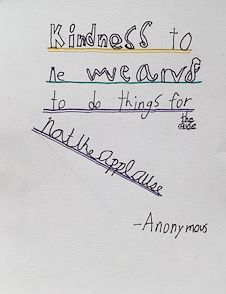 Kindness to
me means
to do things for
the cause
not the applause
-Anonymous